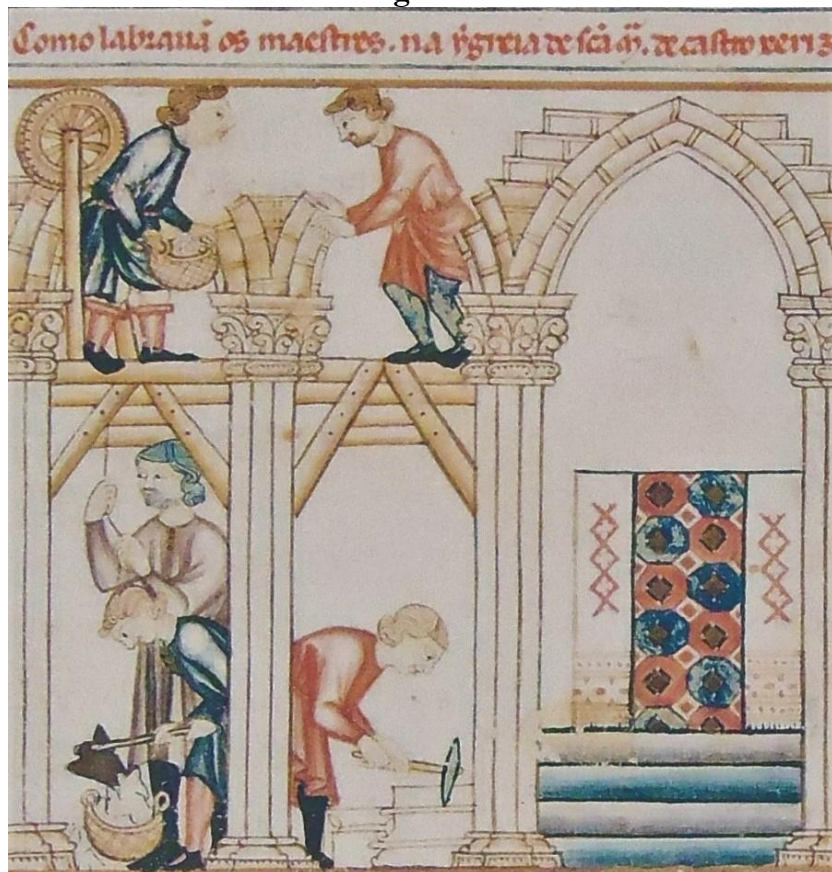 Como labrauã os maestres. na ygreia de scã m. de castro xeriz